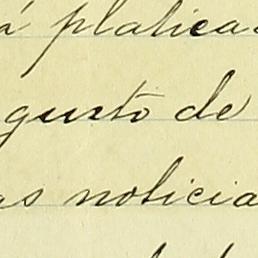 á platica
gusto de
as noticia